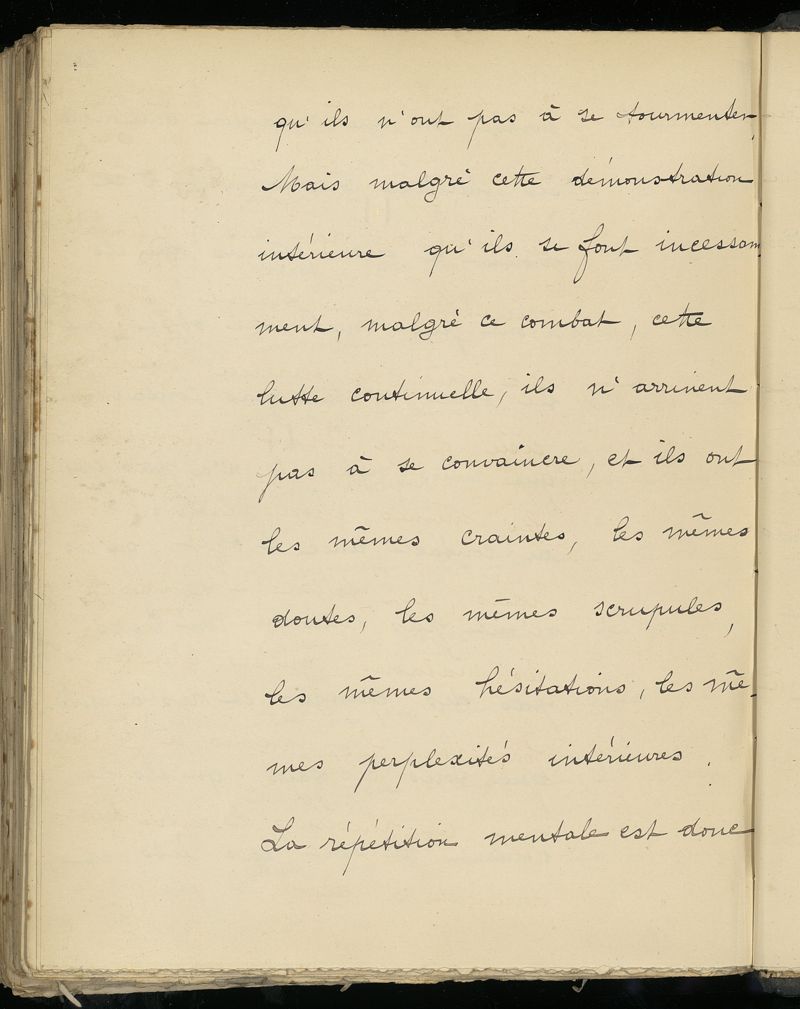 qu'ils n'ont pas à se tourmenter.
Mais malgré cette démonstration
intérieure qu'ils se font incessam
ment, malgré ce combat, cette
lutte continuelle, ils n'arrivent
pas à se convaincre, et ils ont
les mêmes craintes, les mêmes
doutes, les mêmes scrupules,
les mêmes hésitations, les mê-
mes perplexités intérieures.
La répétition mentale est donc